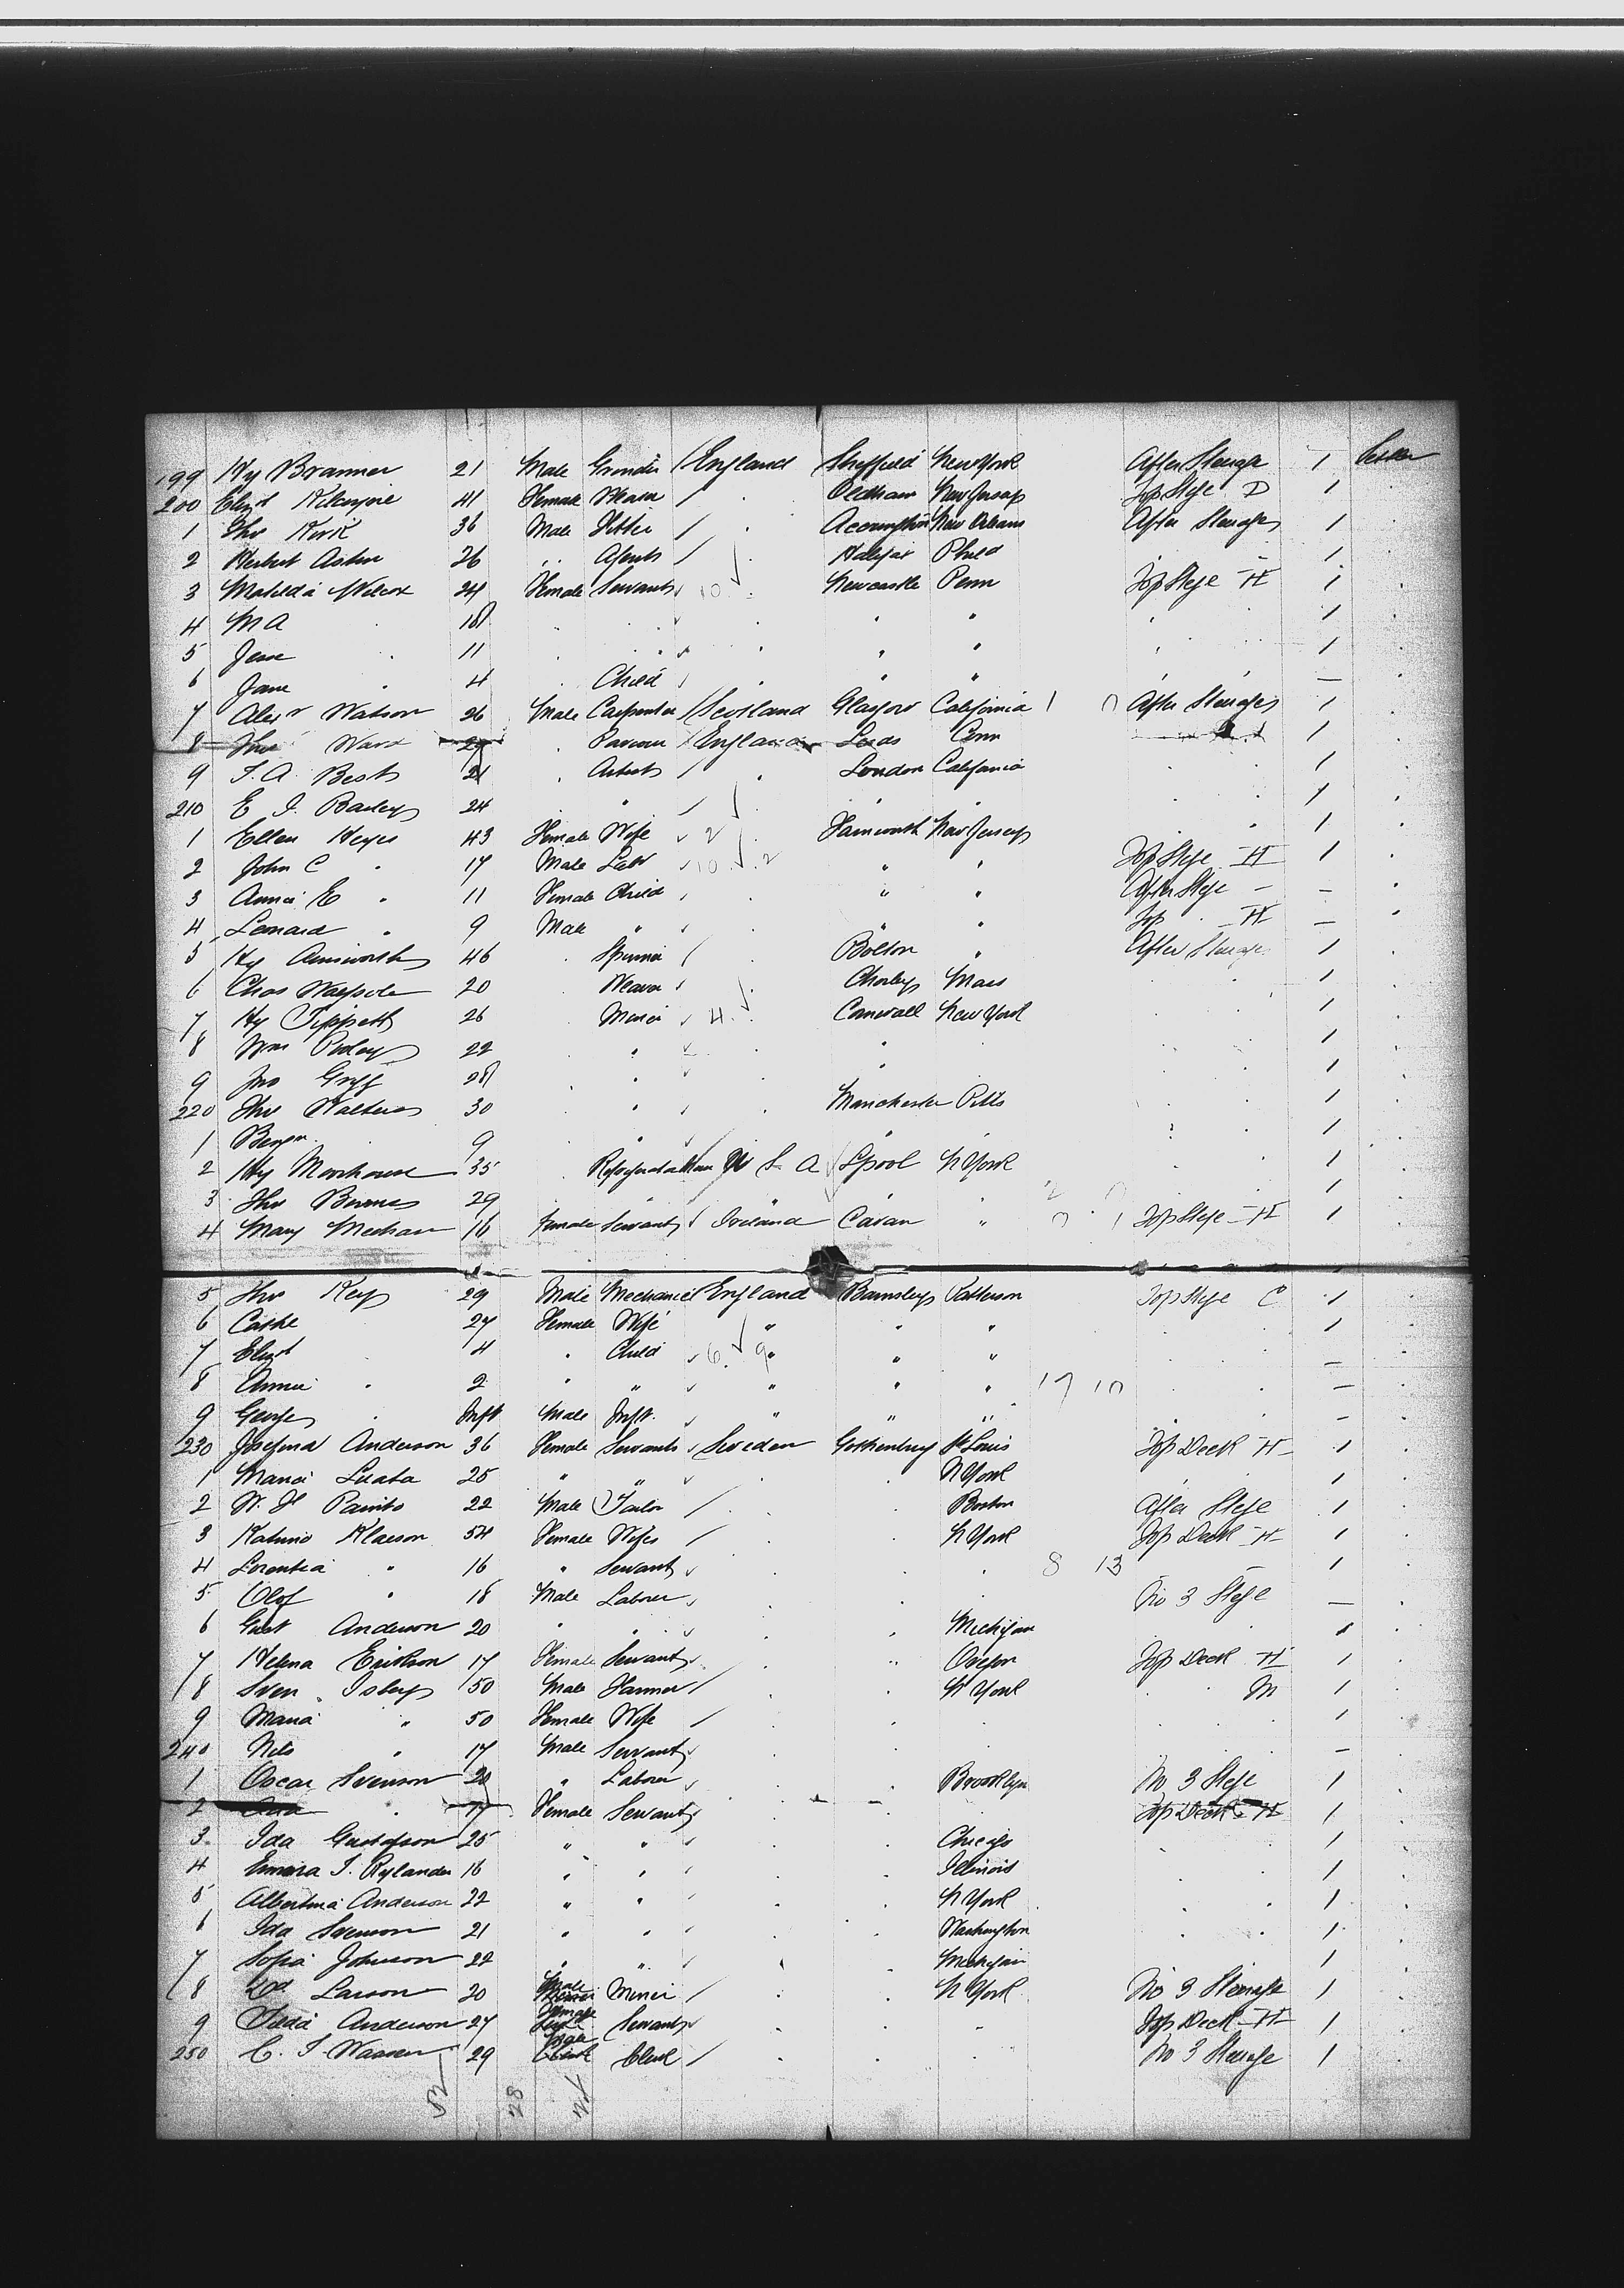 199 Hy Branner 21 Male Grinder England Sheffield New York After Steerage 1
200 Elizt 41 Female Weaver " Oldham New Jersey Top Stege D 1
1 Thos Kirk 36 Male Fitter " Accrington New Orleans After Steerage 1
2 Herbert Aston 26 " Agent Halifax Phila " 1
3 Matilda Wilcox 24 Female Servant 10 " Newcastle Penn Top Stege H 1
4 M A " 18 " " " " " " 1
5 Jesse " 11 " " " " " " 1
6 Jane " 4 " Child " " " " —
7 Alexr Watson 26 Male Carpenter Scotland Glasgow California 1 0 After Steerage 1
8 Thos Ward 29 " England Leeds Penn 1
9 T. A. Best 21 " Artist " London California " 1
210 E J. Bailey 24 " " " " " " 1
1 Ellen Heyes 43 Female Wife 2 " New Jersey " 1
2 John C " 17 Male Lab 10 2 " " Top Stege H 1
3 Annie E " 11 Female Child " " After Stege —
4 Leonard " 9 Male " " " Top " H —
5 Hy Ainsworth 46 " Spinner " Bolton " After Steerage 1
6 Chas Walpole 20 " Weaver " Chorley Mass " 1
7 Hy Tippett 26 " Miner 4 " Cornwall New York " 1
8 Wm 22 " " " " " " 1
9 Jno 28 " " " " " " 1
220 Thos Walters 30 " " " Manchester Pitts " 1
1 Benjn " 9 " " " " " " 1
2 Hy Moorhouse 35 " U S A Lpool N York " 1
3 Thos Burnes 29 " " " " " 2 0 " 1
4 Mary Meehan 16 Female Servant Ireland Cavan " 0 1 Top Stege H 1
5 Thos Key 29 Male Mechanic England Barnsley Patterson Top Stege C 1
6 Cathe " 27 Female Wife " " " " 1
7 Elizt " 4 " Child 6 9 " " " " —
8 Annie " 2 " " " " " 17 10 " —
9 George " Inft Male Inft. " " " " —
230 Josefina Anderson 36 Female Servant Sweden Gothenburg St Louis Top Deck H 1
1 Maria 25 " " " " N York " 1
2 22 Male Tailor " " Boston After Stege 1
3 Katrina Klaeson 54 Female Wife " " N York Top Deck H 1
4 Lorentia " 16 " Servant " " " 8 13 " 1
5 Olof " 18 Male Laborer " " " No 3 Stege —
6 Gust Anderson 20 " " " " Michigan " 1
7 Helena Erikson 17 Female Servant " " Oregon Top Deck H 1
8 Sven Isberg 50 Male Farmer " " N York " M 1
9 Maria " 50 Female Wife " " " " 1
240 Nils " 17 Male Servant " " " " —
1 Oscar Svenson 20 " Laborer " " Brooklyn No 3 Stege 1
2 Ada " 17 Female Servant " " Top Deck H 1
3 Ida Gustafson 25 " " " " Chicago " 1
4 Emma J. Rylander 16 " " " " Illinois " 1
5 Albertina Anderson 22 " " " " N York " 1
6 Ida Svenson 21 " " " " Washington " 1
7 Sofia Johnson 22 " " " " Michigan " 1
8 Larson 20 Male Miner " " N York No 3 Steerage 1
9 Anderson 27 Female Servant " " " Top Deck H 1
250 C. J. 29 Male Clerk " " " No 3 Steerage 1
52 28 24